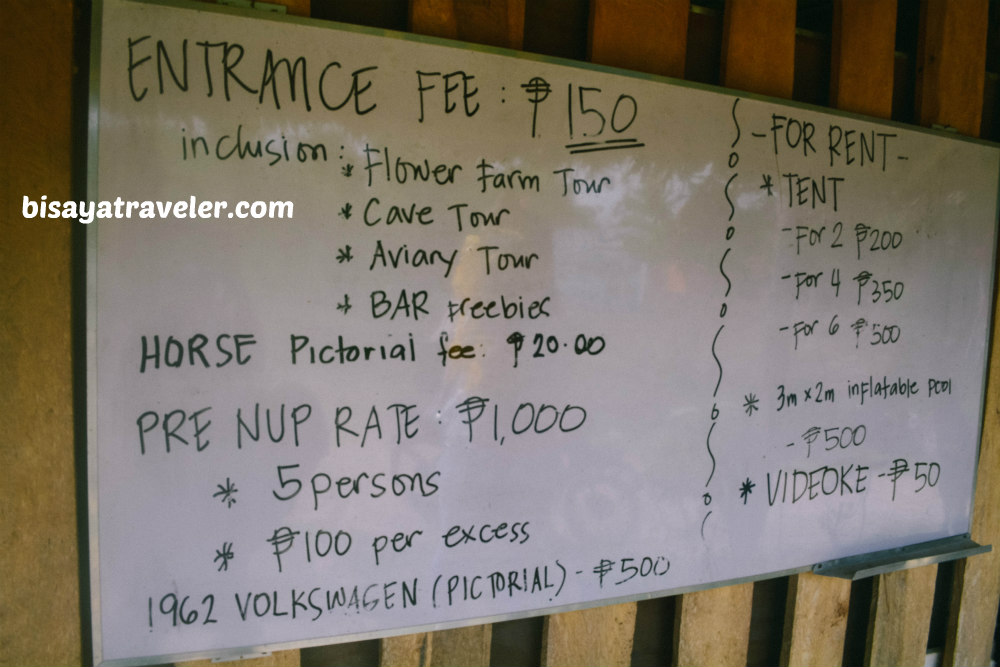 ENTRANCE FEE : ₱150
inclusion : * Flower Farm Tour
* Cave Tour
* Aviary Tour
* BAR Freebies
HORSE Pictorial fee: ₱20.00
PRE NUP RATE : ₱1,000
* 5 persons
* ₱100 per excess
1962 VOLKSWAGEN (PICTORIAL) - ₱500
- FOR RENT -
* TENT
- For 2 ₱200
- For 4 ₱350
- For 6 ₱500
* 3m x 2m inflatable pool
- ₱500
* VIDEOKE - ₱50
bisayatraveler.com